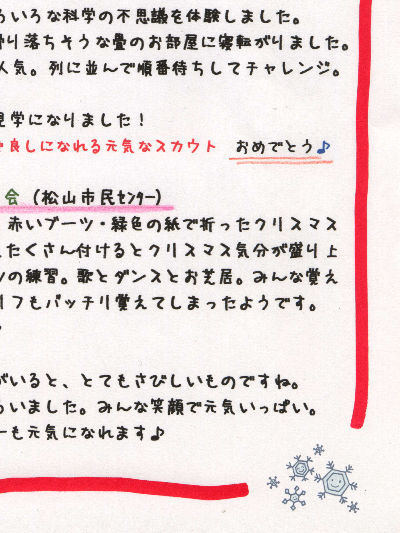 ろいろな科学の不思議を体験しました。
滑り落ちそうな畳のお部屋に寝転がりました。
人気。列に並んで順番待ちしてチャレンジ。
見学になりました！
良しになれる元気なスカウト おめでとう♪
会（松山市民ｾﾝﾀｰ）
赤いブーツ・緑色の紙で折ったクリスマス
たくさん付けるとクリスマス気分が盛り上
の練習。歌とダンスとお芝居。みんな覚え
リフもバッチリ覚えてしまったようです。
がいると、とてもさびしいものですね。
らいました。みんな笑顔で元気いっぱい。
ーも元気になれます♪